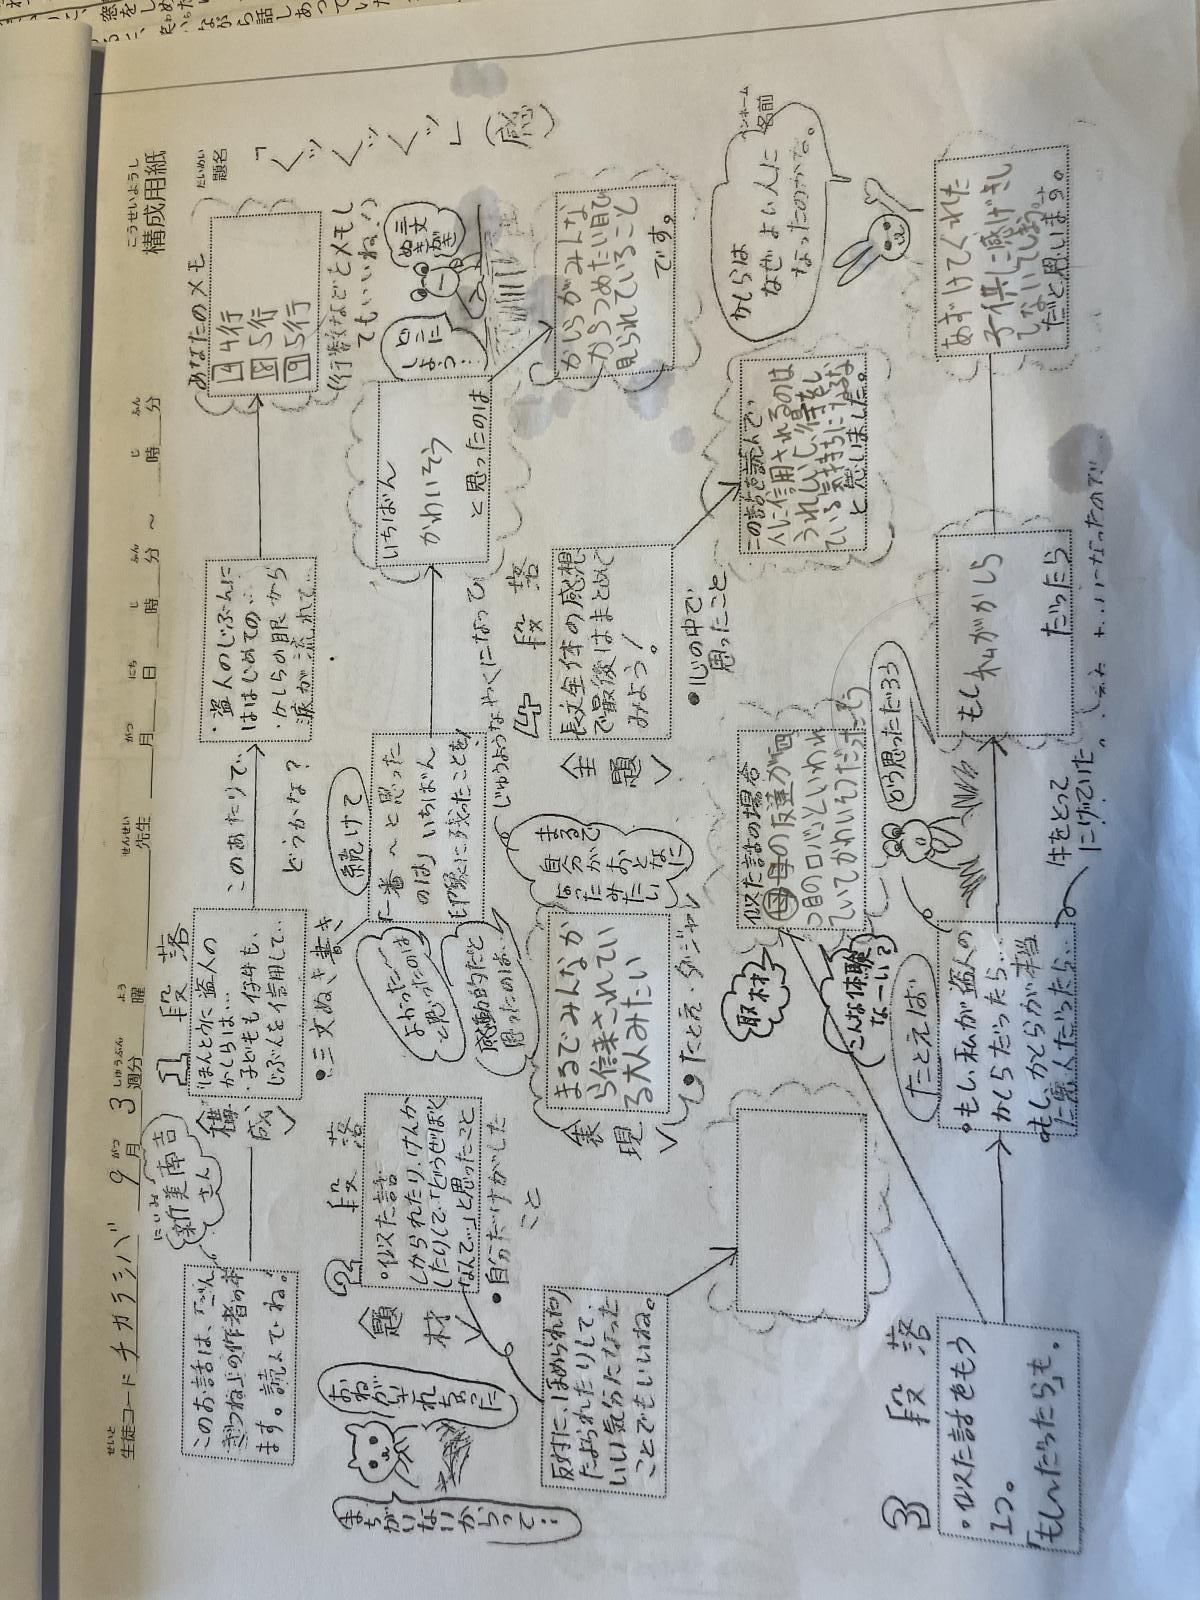 こうせいようし
構成用紙
せいと
生徒コード チカラシバ 9月 3週分 曜 先生 月 日 時 分 ～ 時 分
がつ しゅうぶん よう せんせい がつ にち じ ふん じ ふん
たいめい
題名
「くッくッくッ」
(感)
ペンホーム
名前
このお話は、「ごん
ぎつね」の作者の本
ます。読んでね!
にいみ
新美南吉
さん
1段落
構成
・ほんとうに盗人の
かしらは…
・子どもも仔牛も、
じぶんを信用して…
このあたりで…
どうかな?
・盗人のじぶんに
ははじめての…
・かしらの眼から
涙が流れて…
あなたのメモ
4行
5行
5行
(行数などをメモし
てもいいね!)
●三文ぬき書き
続けて
「一番〜と思った
のは」いちばん
印象に残ったことを!
よかった
と思ったのは
感動的だと
思ったのは…
いちばん
かわいそう
と思ったのは
どこに
しよう?
三文
ぬき
がき
かしらがみんな
からつめたい目で
見られていること
です。
2段落
題材
・似た話
しかられたり、けんか
したりして、「どうせぼくな
なんて…」と思ったこと
●自分だけがした
こと
おねがい
まちがいないからって…
反対に、ほめられたり
たよられたりして、
いい気分になった
ことでもいいね。
表現
まるでみんなか
ら信来されてい
る大人みたい
まるで
自分が
おとなに
なったみたい
●たとえ・ダジャレ
じゅうようなやくになって
4段落
主題
長文全体の感想
で最後はまとめて
みよう!
●心の中で
思ったこと
この話を読んで、
人に信用されるのは
うれしいし、得をし
ている気持ちになるな
と思いました。
かしらは
なぜよい人に
なったのかな。
取材
こんな体験
な〜い?
似た話の場合
母の友達が四
つ目のロバといわれ
ていてかわいそうだった
3段落
・似た話をもう
1つ。
「もし〜だったら」も。
たとえば
●もし、私が盗人の
かしらだったら…
●もし、かしらが本当
に悪人だったら…
どう思っただろう
牛をとって
にげていた。
もし私がかしら
だったら
あずけてくれた
子供に感げきし
しないてしまう。
だと思います。